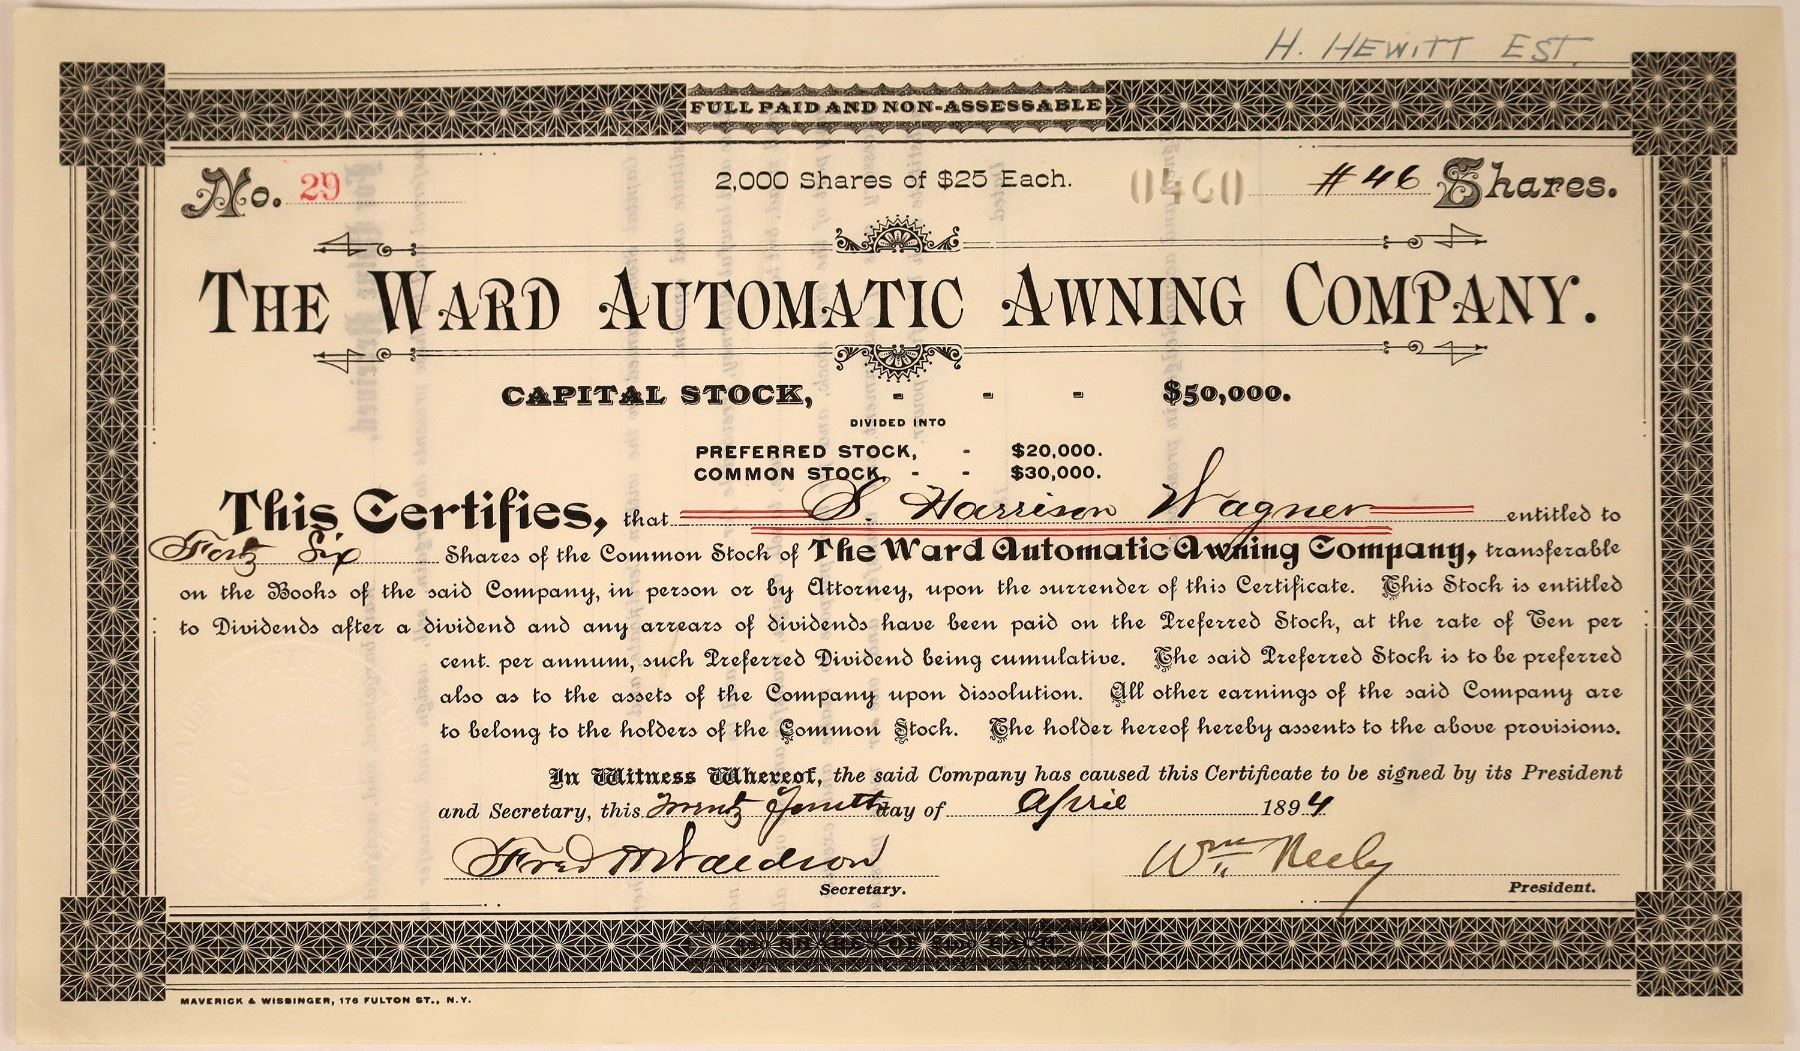 H. HEWITT EST.
FULL PAID AND NON-ASSESSABLE
No. 29 2,000 Shares of $25 Each. 0460 #46 Shares.
THE WARD AUTOMATIC AWNING COMPANY.
CAPITAL STOCK, - - - $50,000.
DIVIDED INTO
PREFERRED STOCK, - $20,000.
COMMON STOCK, - - $30,000.
This Certifies, that S. Harrison Wagner entitled to
Forty Six Shares of the Common Stock of The Ward Automatic Awning Company, transferable
on the Books of the said Company, in person or by Attorney, upon the surrender of this Certificate. This Stock is entitled
to Dividends after a dividend and any arrears of dividends have been paid on the Preferred Stock, at the rate of Ten per
cent. per annum, such Preferred Dividend being cumulative. The said Preferred Stock is to be preferred
also as to the assets of the Company upon dissolution. All other earnings of the said Company are
to belong to the holders of the Common Stock. The holder hereof hereby assents to the above provisions.
In Witness Whereof, the said Company has caused this Certificate to be signed by its President
and Secretary, this Twenty Fourth day of April 1894
Fred Waldron Wm. Neely
Secretary. President.
SHARES OF $100 EACH.
MAVERICK & WISSINGER, 176 FULTON ST., N.Y.